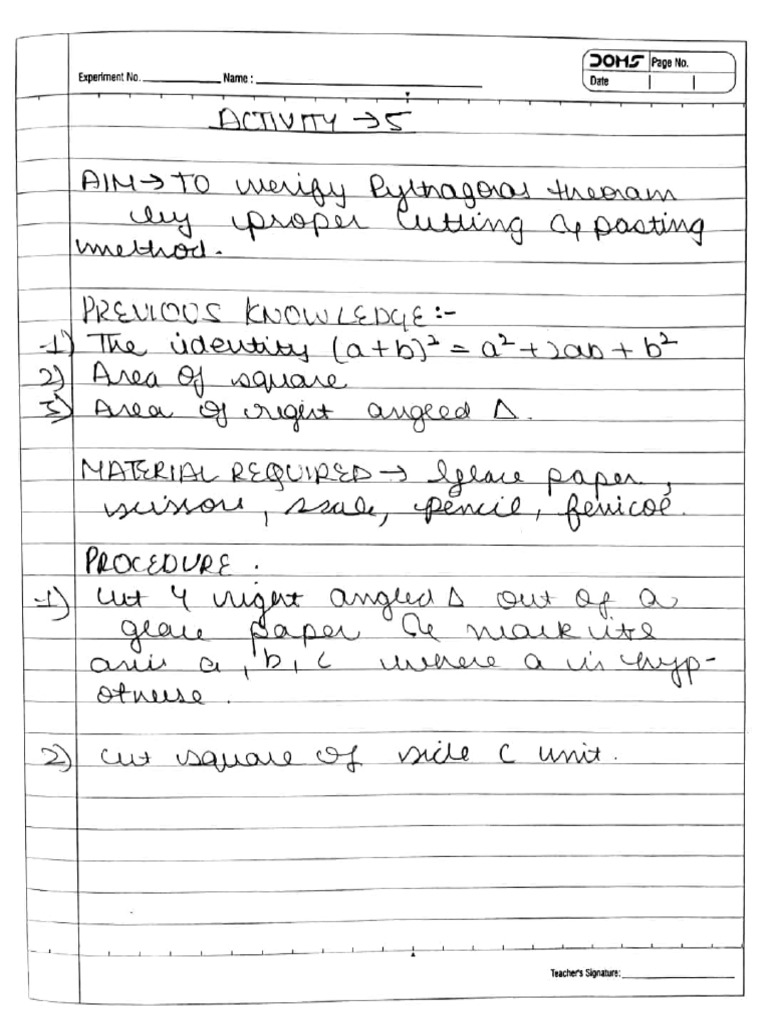 DOMS Page No.
Experiment No. Name :
Date
ACTIVITY → 5
AIM → TO verify Pythagoras theoram
by proper cutting & pasting
method.
PREVIOUS KNOWLEDGE :-
1) The identity (a+b)² = a² + 2ab + b²
2) Area of square
3) Area of right angled Δ.
MATERIAL REQUIRED → glace paper,
scissors, scale, pencil, fevicol.
PROCEDURE .
1) Cut 4 right angled Δ out of a
glace paper & mark its
a, b, c where a is hyp-
otneuse.
2) cut square of side c unit.
Teacher's Signature: